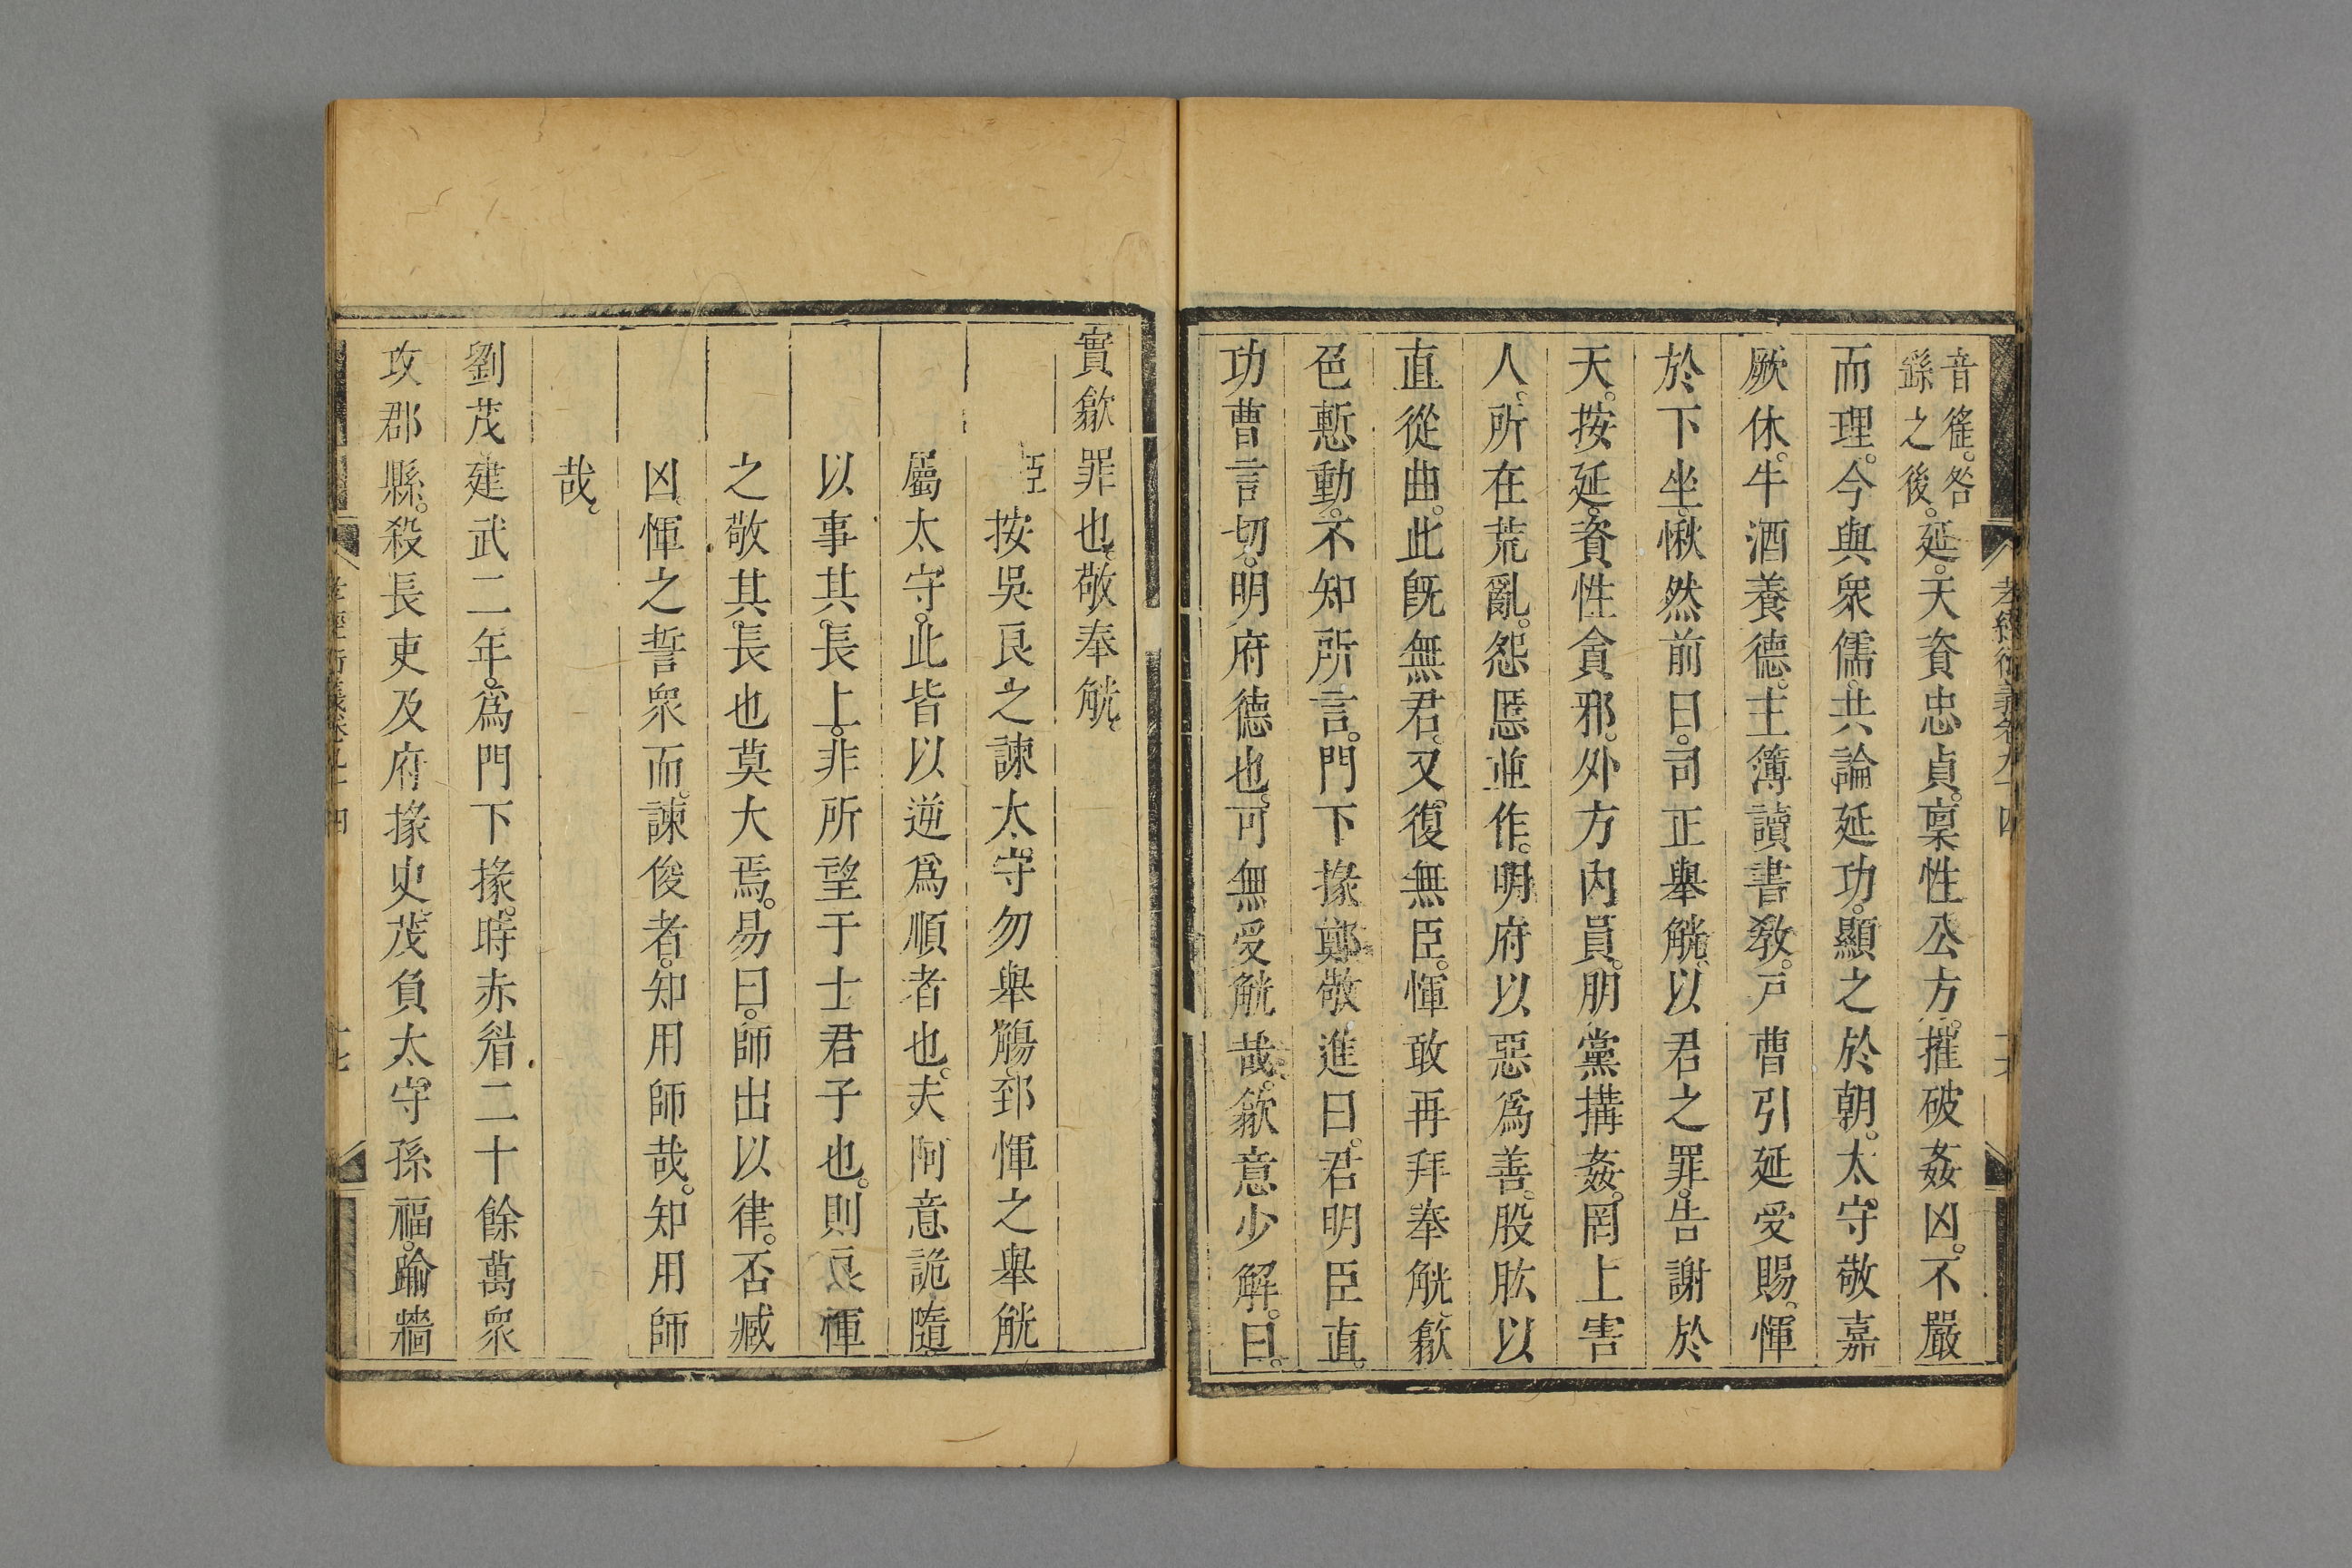 孝經衍義卷九十四
音徭。咎
繇之後。延。天資忠貞。稟性公方。摧破姦凶。不嚴
而理。今與衆儒共論延功。顯之於朝。太守敬嘉
厥休。牛酒養德。主簿讀書教。戸曹引延受賜。惲
於下坐。愀然前曰。司正舉觥。以君之罪。告謝於
天。按延。資性貪邪。外方內員。朋黨搆姦。罔上害
人。所在荒亂。怨慝並作。明府以惡爲善。股肱以
直從曲。此旣無君。又復無臣。惲敢再拜奉觥。歙
色慙動。不知所言。門下掾鄭敬進曰。君明臣直。
功曹言切。明府德也。可無受觥哉。歙意少解。曰。
實歙罪也。敬奉觥。
臣按吳良之諫太守勿舉觴。郅惲之舉觥
屬太守。此皆以逆爲順者也。夫阿意詭隨
以事其長上。非所望于士君子也。則良惲
之敬其長也莫大焉。易曰。師出以律。否臧
凶。惲之誓衆而諫俊者。知用師哉。知用師
哉。
劉茂建武二年。爲門下掾。時赤眉二十餘萬衆
攻郡縣。殺長吏及府掾史。茂負太守孫福。踰牆